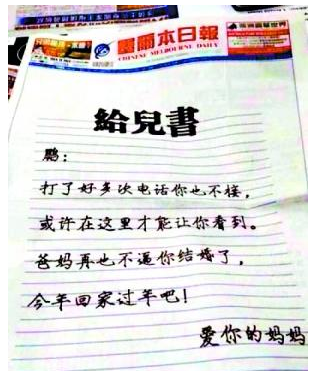 墨爾本日報
CHINESE MELBOURNE DAILY
給兒書
鹏：
打了好多次电话你也不接，
或许在这里才能让你看到。
爸妈再也不逼你结婚了，
今年回家过年吧！
爱你的妈妈